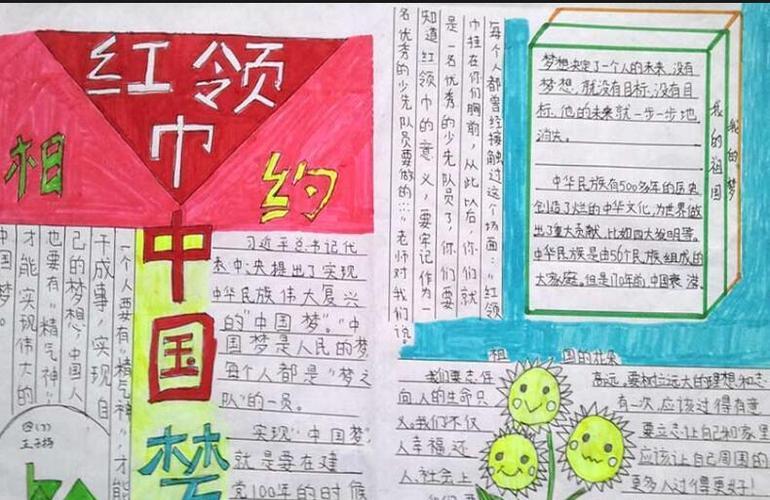 红领
巾
相
约
中
国
梦
一个人要有“精气神”，才能
干成事，实现自
己的梦想，中国人
也要有“精气神”
才能实现伟大的
中国梦。
习近平总书记代
表中央提出了实现
中华民族伟大复兴
的“中国梦”。“中
国梦是人民的梦
每个人都是“梦之
队”的一员。
实现“中国梦”
就是要在建
党100年的时候
每个人都曾经接触过这个场面：“红领
巾挂在你们胸前，从此以后，你们就
是一名优秀的少先队员了，你们要
知道红领巾的意义，要牢记作为一
名优秀的少先队员要做的……”老师对我们说。
梦想决定了一个人的未来，没有
梦想，就没有目标，没有目
标，他的未来就一步一步地
消失。
中华民族有5000多年的历史
创造了灿烂的中华文化，为世界做
出了重大贡献，比如四大发明等。
中华民族是由56个民族组成的
大家庭。但是170年前，中国衰落
我的祖国
我的梦
祖国的未来
我们要志存高远，要树立远大的理想和志
向人的生命只有一次，应该过得有意
义。我们不仅要立志让自己和家里
人幸福，还应该让自己周围的
人、社会上更多人过得更好！